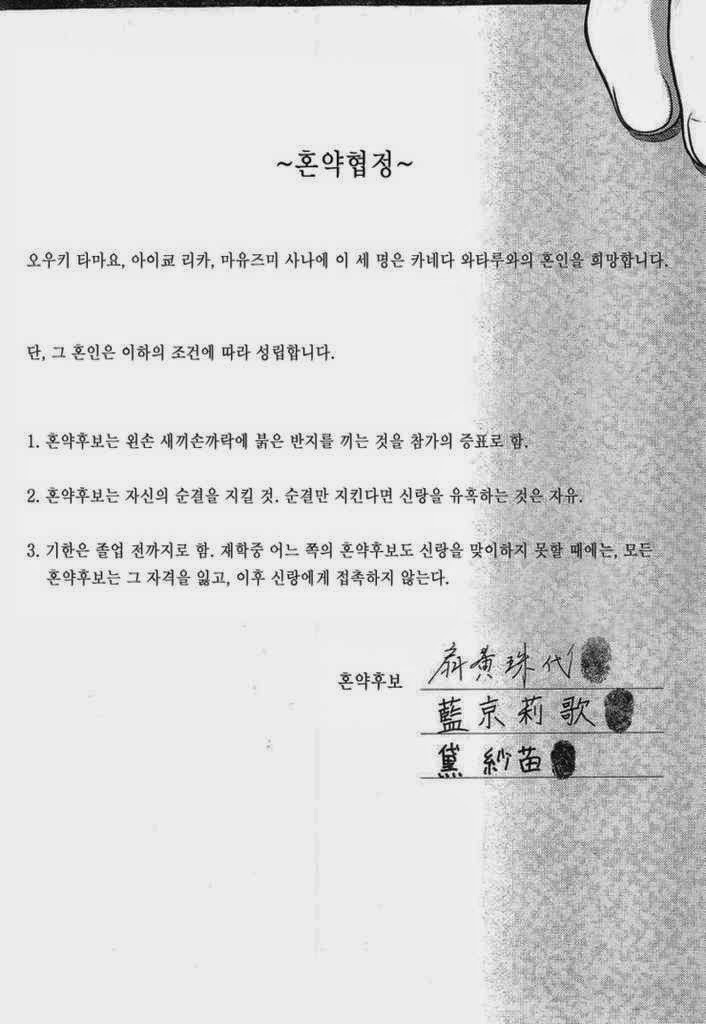 ~혼약협정~
오우키 타마요, 아이쿄 리카, 마유즈미 사나에 이 세 명은 카네다 와타루와의 혼인을 희망합니다.
단, 그 혼인은 이하의 조건에 따라 성립합니다.
1. 혼약후보는 왼손 새끼손까락에 붉은 반지를 끼는 것을 참가의 증표로 함.
2. 혼약후보는 자신의 순결을 지킬 것. 순결만 지킨다면 신랑을 유혹하는 것은 자유.
3. 기한은 졸업 전까지로 함. 재학중 어느 쪽의 혼약후보도 신랑을 맞이하지 못할 때에는, 모든
혼약후보는 그 자격을 잃고, 이후 신랑에게 접촉하지 않는다.
혼약후보
黃珠代
藍京莉歌
黛 紗苗